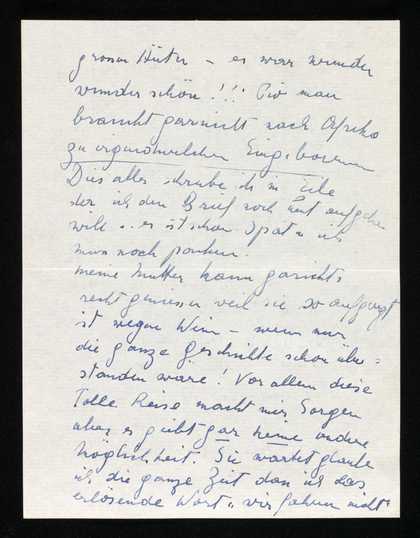 grossen Hüten – es war wunder
wunder schön!!! Pio man
braucht garnicht nach Afrika
zu irgendwelchen Eingeborenen
Dies alles schreibe ich in Eile
der ich den Brief noch heut aufgeben
will .. es ist schon Spät u. ich
muss noch packen.
meine Mutter kann garnichts
recht geniessen weil sie so aufgeregt
ist wegen Wien – wenn nur
die ganze Geschichte schon über=
standen wäre! Vor allem diese
Tolle Reise macht mir Sorgen
aber es giebt gar keine andere
Möglichkeit. Sie wartet glaube
ich die ganze Zeit dass ich das
erlösende Wort „wir fahren nicht"